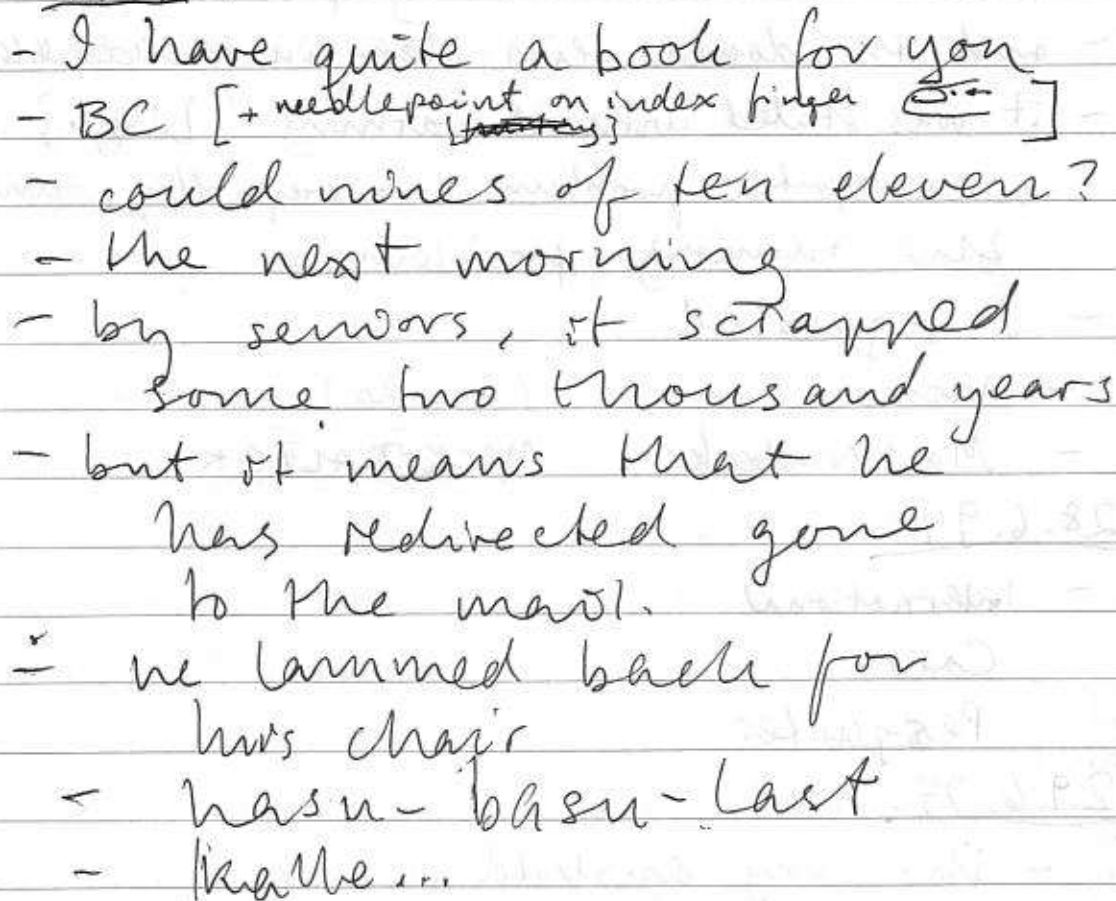 - I have quite a book for you
- BC [+ needlepoint on index finger ]
- could nines of ten eleven?
- the next morning
- by seniors, it scrapped
some two thousand years
- but it means that he
has redirected gone
to the mail.
- he lammed back for
his chair
- hasu-basu-last
- Kalle...